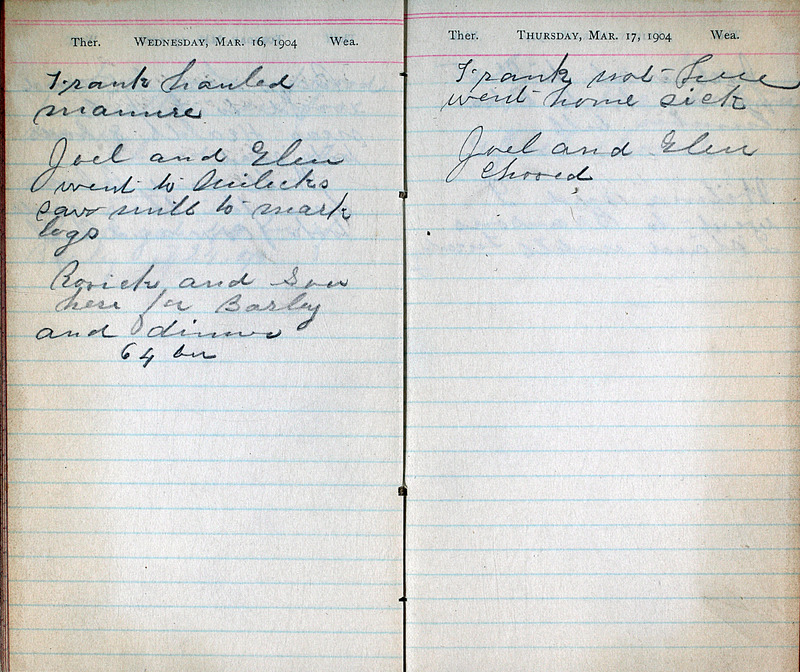 Ther. Wednesday, Mar. 16, 1904 Wea.
Frank hauled
manure
Joel and Glen
went to
saw mill to mark
logs
and Son
here for Barley
and dinner
64 bu
Ther. Thursday, Mar. 17, 1904 Wea.
Frank not here
went home sick
Joel and Glen
Chored